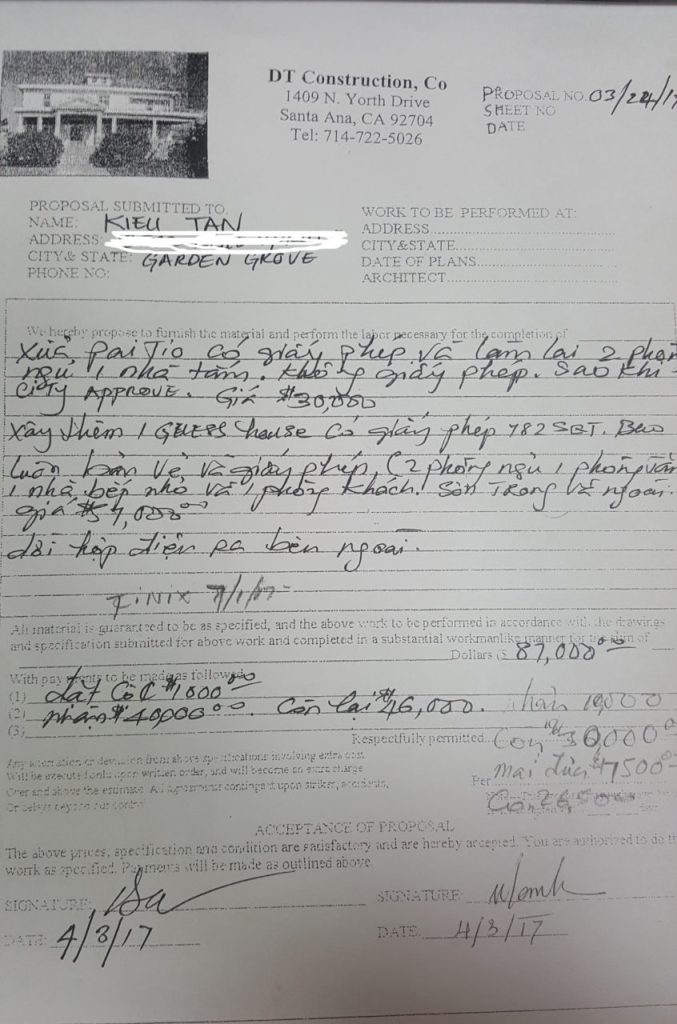 DT Construction, Co
1409 N. Yorth Drive
Santa Ana, CA 92704
Tel: 714-722-5026
PROPOSAL NO. 03/24/17
SHEET NO
DATE
PROPOSAL SUBMITTED TO
NAME: KIEU TAN
ADDRESS:
CITY& STATE: GARDEN GROVE
PHONE NO:
WORK TO BE PERFORMED AT:
ADDRESS
CITY&STATE
DATE OF PLANS
ARCHITECT
We hereby propose to furnish the material and perform the labor necessary for the completion of
có giấy phép và làm lại 2 phòng
ngủ 1 nhà tắm. không giấy phép. Sao khi
CITY APPROVE. Giá $30,000
Xây thêm 1 house có giấy phép 782 SQT. Bao
luôn bản vẽ và giấy phép, (2 phòng ngủ 1 phòng tắm
1 nhà bếp nhỏ và 1 phòng khách. Sơn Trong và ngoài.
giá $57,000.00
dời hộp điện ra bên ngoài.
FINIX 7/1/17
All material is guaranteed to be as specified, and the above work to be performed in accordance with the drawings
and specification submitted for above work and completed in a substantial workmanlike manner for the sum of
Dollars ($ 87,000.00
With payments to be made as followed:
(1) đặt cọc $1000.00
(2) nhận $40000.00. Còn lại $46,000. nhận 10,000
(3)
Respectfully permitted. Còn 36,000.00
Any alteration or deviation from above specifications involving extra cost
Will be executed only upon written order, and will become an extra charge
Over and above the estimate. All agreements contingent upon strikes, accidents,
Or delays beyond our control
Per $7500.00
ACCEPTANCE OF PROPOSAL
The above prices, specification and condition are satisfactory and are hereby accepted. You are authorized to do the
work as specified. Payments will be made as outlined above.
SIGNATURE:
SIGNATURE
DATE: 4/3/17
DATE 4/3/17